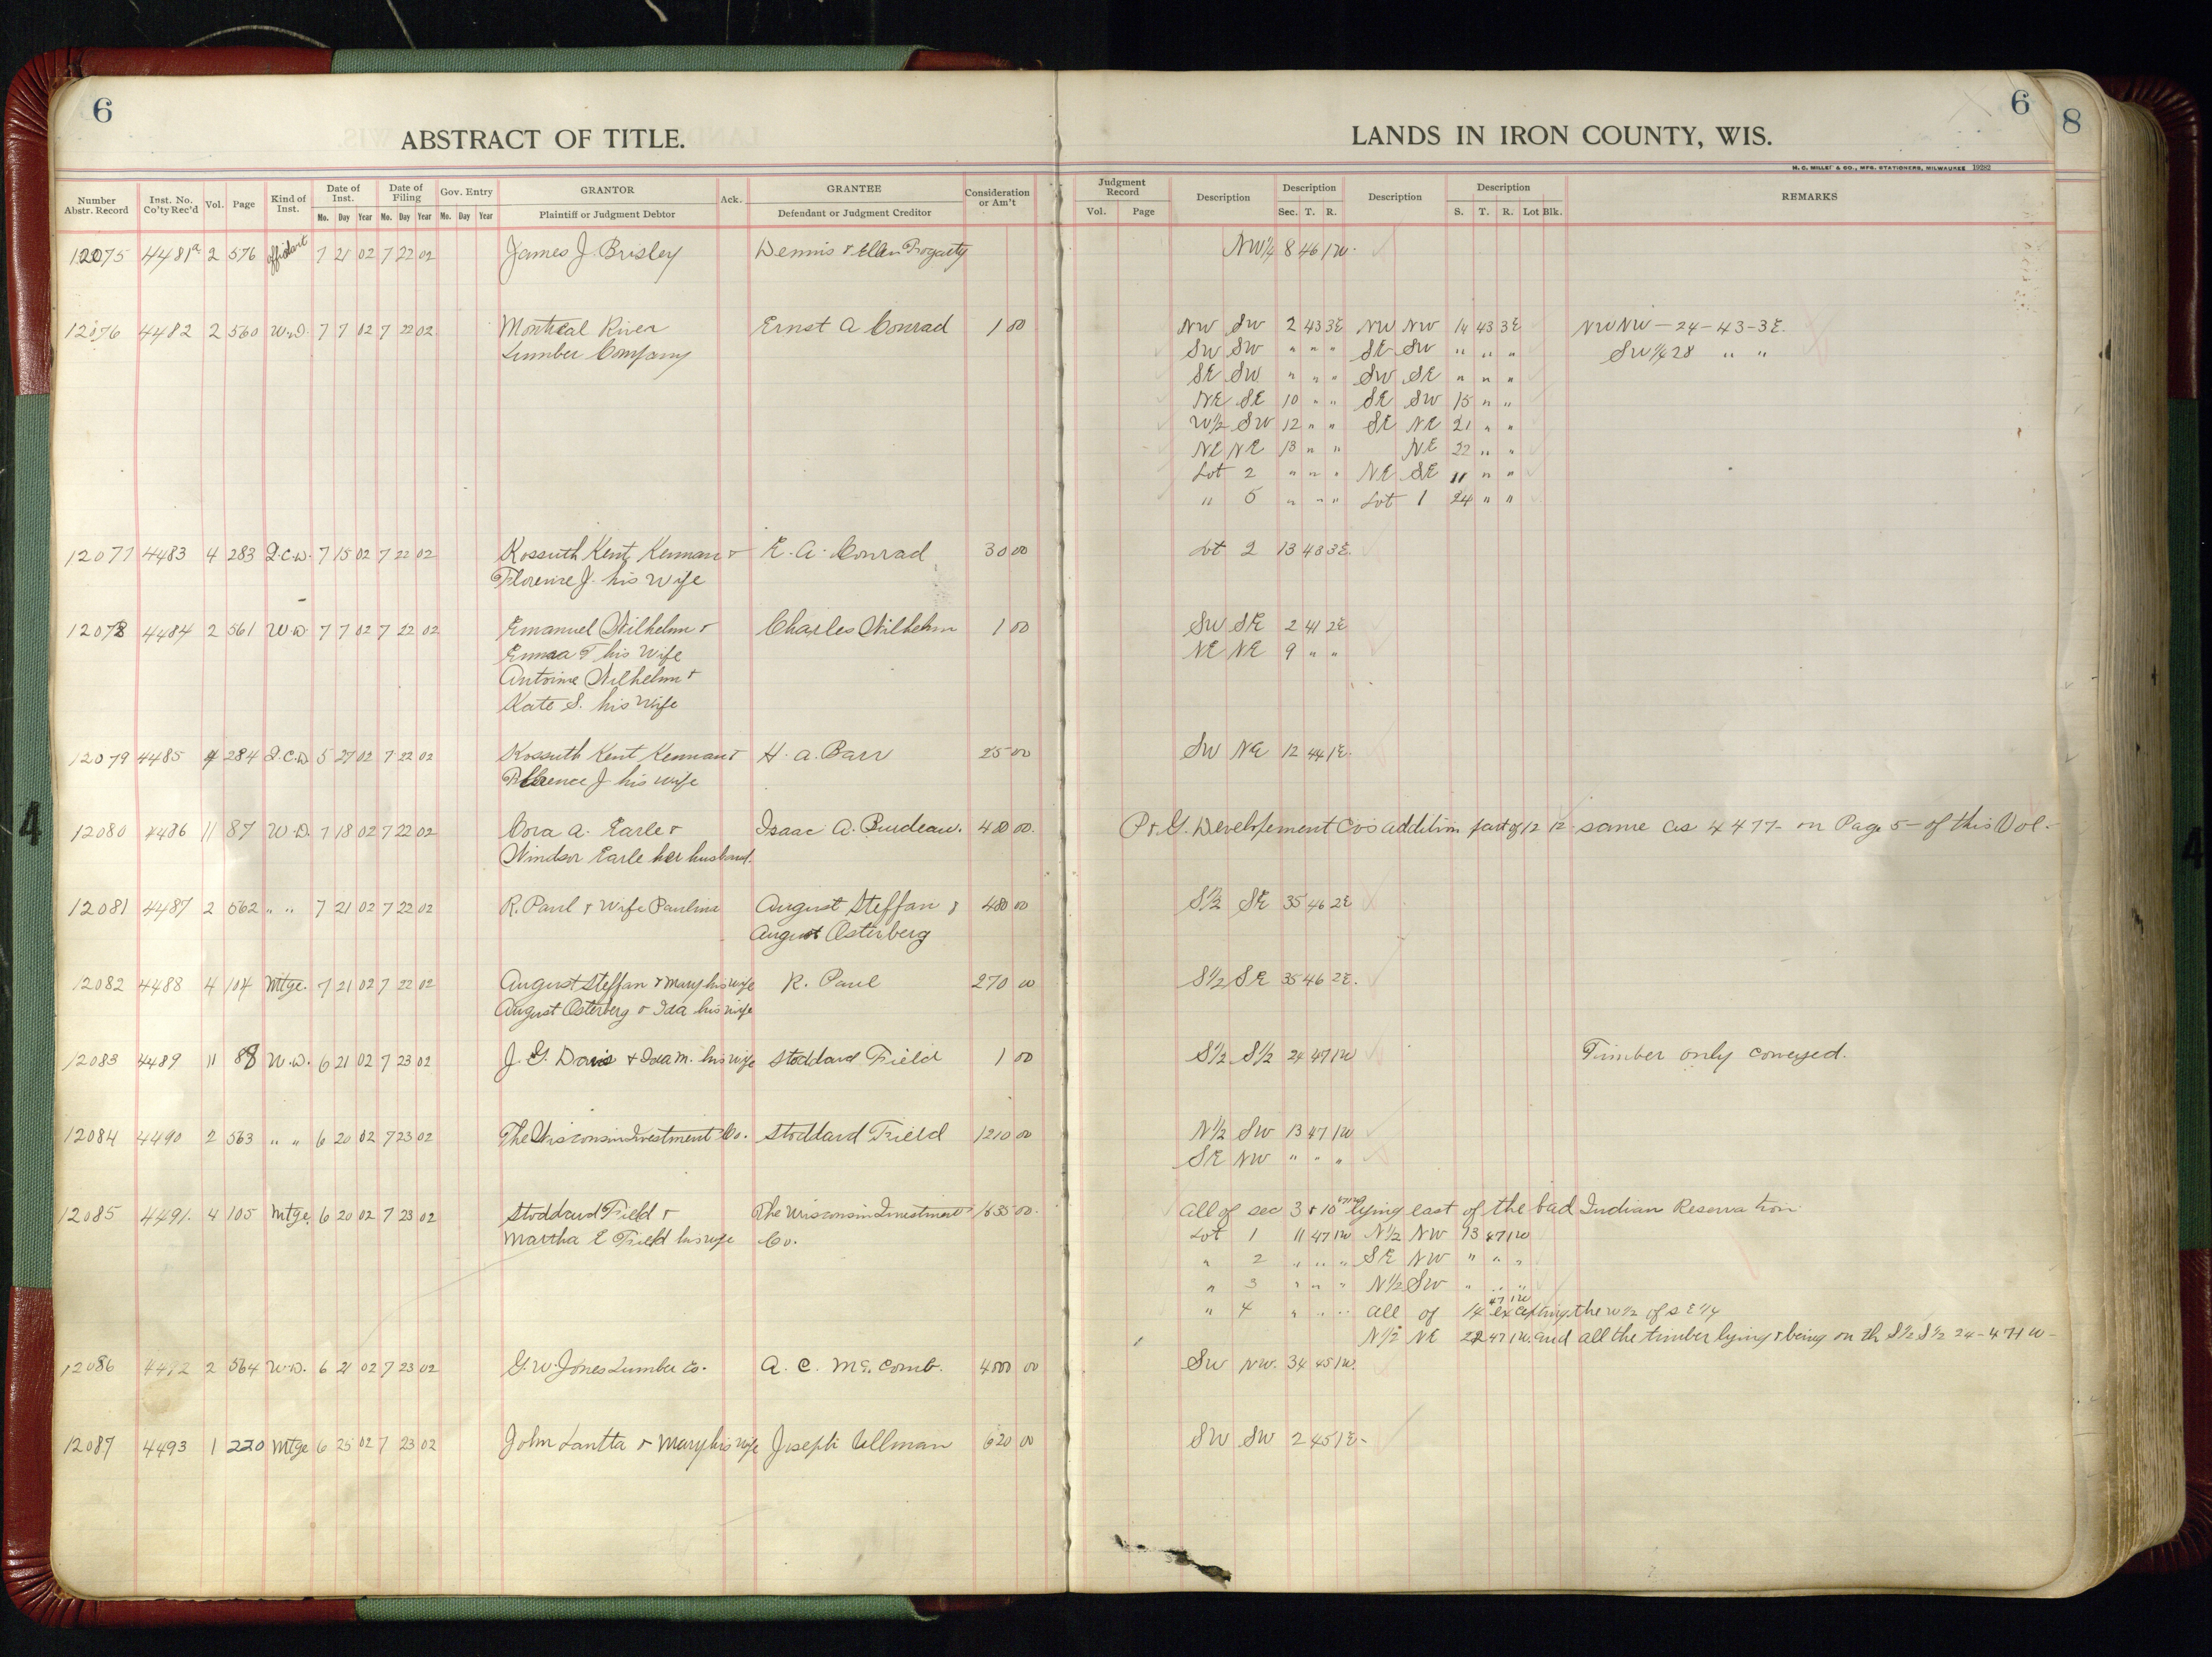 6
ABSTRACT OF TITLE.
LANDS IN IRON COUNTY, WIS.
6
8
H. C. MILLER & CO., MFG. STATIONERS, MILWAUKEE 19282
Number Abstr. Record | Inst. No. Co'ty Rec'd | Vol. | Page | Kind of Inst. | Date of Inst. Mo. Day Year | Date of Filing Mo. Day Year | Gov. Entry Mo. Day Year | GRANTOR Plaintiff or Judgment Debtor | Ack. | GRANTEE Defendant or Judgment Creditor | Consideration or Am't | Judgment Record Vol. Page | Description | Description Sec. T. R. | Description | Description S. T. R. Lot Blk. | REMARKS
12075 4481a 2 576 affidavit 7 21 02 7 22 02 James J. Brisley Dennis & Ellen Fogarty NW1/4 8 46 1W.
12076 4482 2 560 W.D. 7 7 02 7 22 02 Montreal River Ernst A Conrad 1 00 NW SW 2 43 3E NW NW 14 43 3E NWNW-24-43-3E.
Lumber Company SW SW " " " SE SW " " " SW1/4 28 " "
SE SW " " " SW SE " " "
NE SE 10 " " SE SW 15 " "
W1/2 SW 12 " " SE NE 21 " "
NE NE 13 " " NE 22 " "
Lot 2 " " " NE SE " " "
" 5 " " " Lot 1 24 " "
12077 4483 4 283 Q.C.D. 7 15 02 7 22 02 Kossuth Kent Kennan & E. A. Conrad 30 00 Lot 2 13 43 3E.
Florence J. his wife
12078 4484 2 561 W.D. 7 7 02 7 22 02 Emanuel Wilhelm & Charles Wilhelm 1 00 SW SE 2 41 2E
Emma T his Wife NE NE 9 " "
Antoine Wilhelm &
Kate S. his Wife
12079 4485 4 284 Q.C.D. 5 27 02 7 22 02 Kossuth Kent Kennan & H. A. Barr 25 00 SW NE 12 44 1E.
Florence J his wife
12080 4486 11 87 W.D. 7 18 02 7 22 02 Cora A. Earle & Isaac A. Burdeau. 400 00. P. & G. Developement Co's addition part of 12 12 same as 4477- on Page 5- of this Vol.
Windsor Earle her husband.
12081 4487 2 562 " " 7 21 02 7 22 02 R. Paul & Wife Paulina August Steffan & 480 00 S1/2 SE 35 46 2E
August Osterberg
12082 4488 4 104 Mtge. 7 21 02 7 22 02 August Steffan & Mary his wife R. Paul 270 00 S1/2 SE 35 46 2E.
August Osterberg & Ida his wife
12083 4489 11 88 W.D. 6 21 02 7 23 02 J. G. Davis & Ida M. his wife Stoddard Field 1 00 S1/2 S1/2 24 47 1W Timber only conveyed.
12084 4490 2 563 " " 6 20 02 7 23 02 The Wisconsin Investment Co. Stoddard Field 1210 00 N1/2 SW 13 47 1W
SE NW " " "
12085 4491. 4 105 Mtge. 6 20 02 7 23 02 Stoddard Field & The Wisconsin Investment 1635 00. all of sec 3 & 10 47 1W lying east of the bad Indian Reservation
Martha E Field his wife Co. Lot 1 11 47 1W N1/2 NW 13 47 1W
" 2 " " " SE NW " " "
" 3 " " " N1/2 SW " " "
" 4 " " " all of 14 47 1W excepting the W1/2 of SE1/4
N1/2 NE 22 47 1W. and all the timber lying & being on th S1/2 S1/2 24-47 1W-
12086 4492 2 564 W.D. 6 21 02 7 23 02 G. W. Jones Lumber Co. A. C. McComb. 4000 00 SW NW. 34 45 1W.
12087 4493 1 220 Mtge 6 25 02 7 23 02 John Lantta & Mary his wife Joseph Ullman 620 00 SW SW 2 45 1E-
4
4